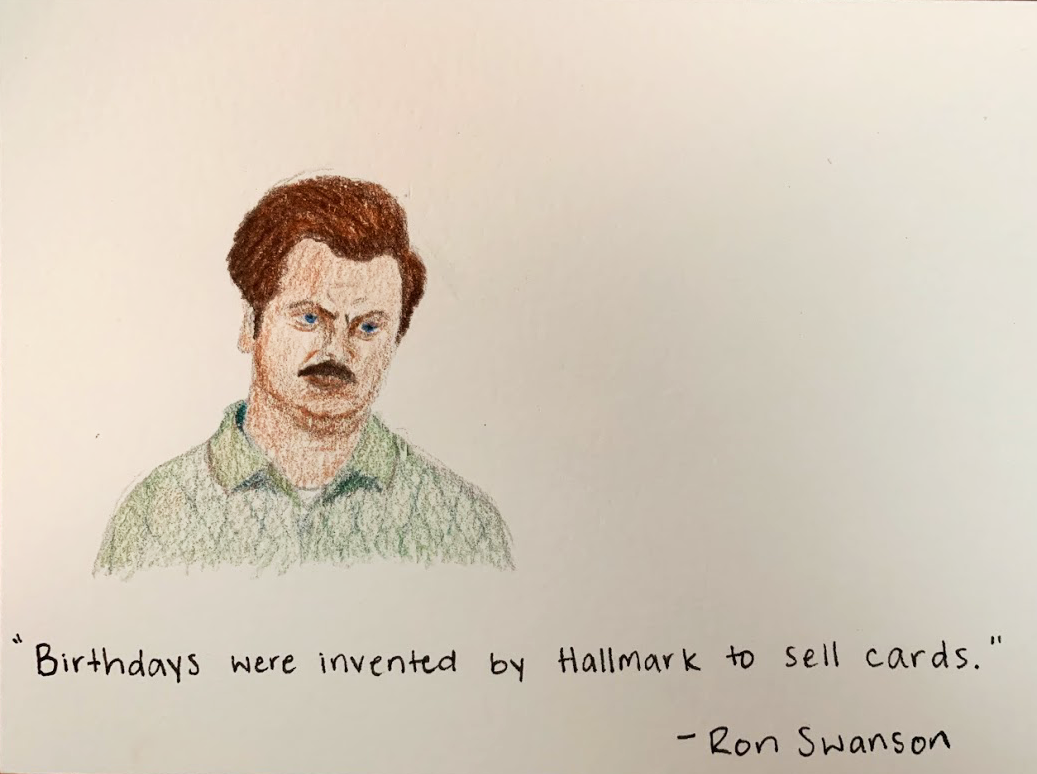 "Birthdays were invented by Hallmark to sell cards."
- Ron Swanson